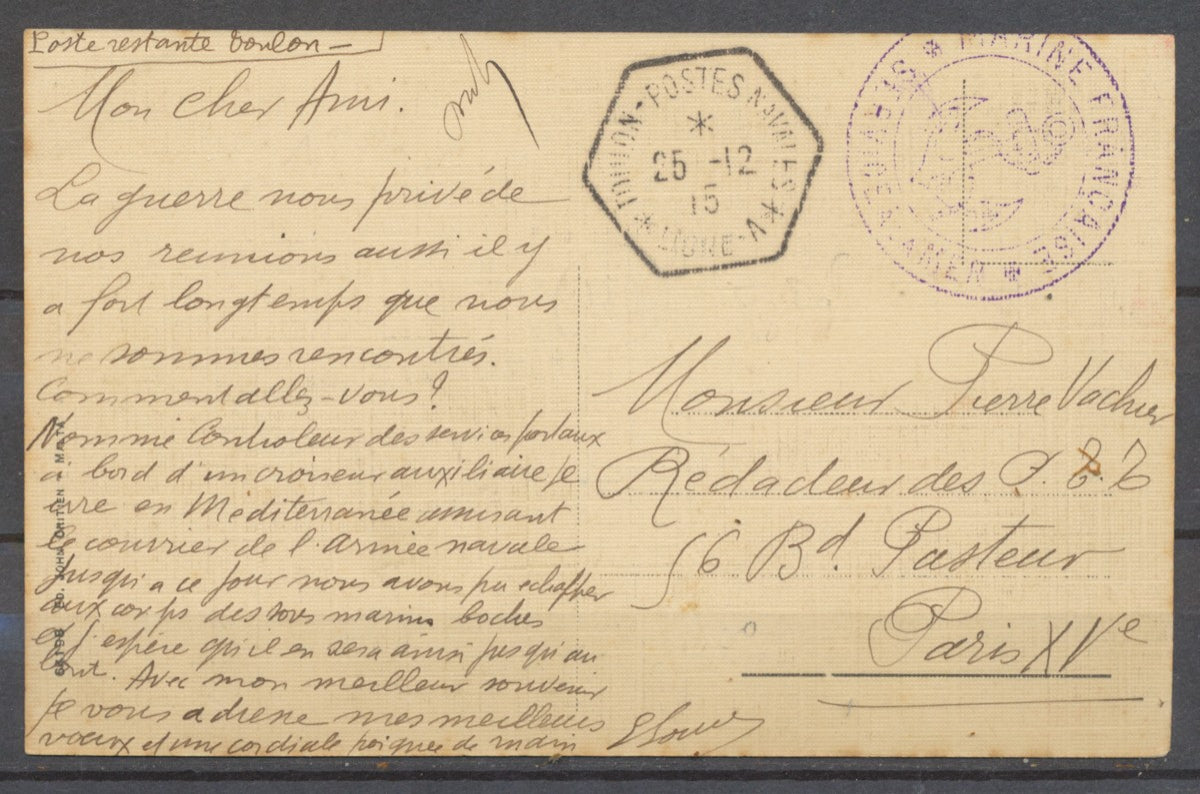 Poste restante Toulon —
Mon cher Ami.
La guerre nous privé de
nos reunions aussi il y
a fort longtemps que nous
ne sommes rencontrés.
Comment allez-vous?
Nommé Controleur des services postaux
à bord d'un croiseur auxiliaire je
erre en Méditerranée assurant
le courrier de l'Armée navale
Jusqu'a ce jour nous avons pu echapper
aux corps des sous marins boches
et j'espère qu'il en sera ainsi jusqu'au
bout. Avec mon meilleur souvenir
je vous adresse mes meilleurs
voeux et une cordiale poignée de main
TOULON - POSTES NAVALES
25 -12
15
* LIGNE - V *
* MARINE FRANÇAISE *
SERVICE À LA MER
Monsieur Pierre Vacher
Rédacteur des P.T.T
56 Bd. Pasteur
Paris XVe
JOHN CRITIEN - MALTA